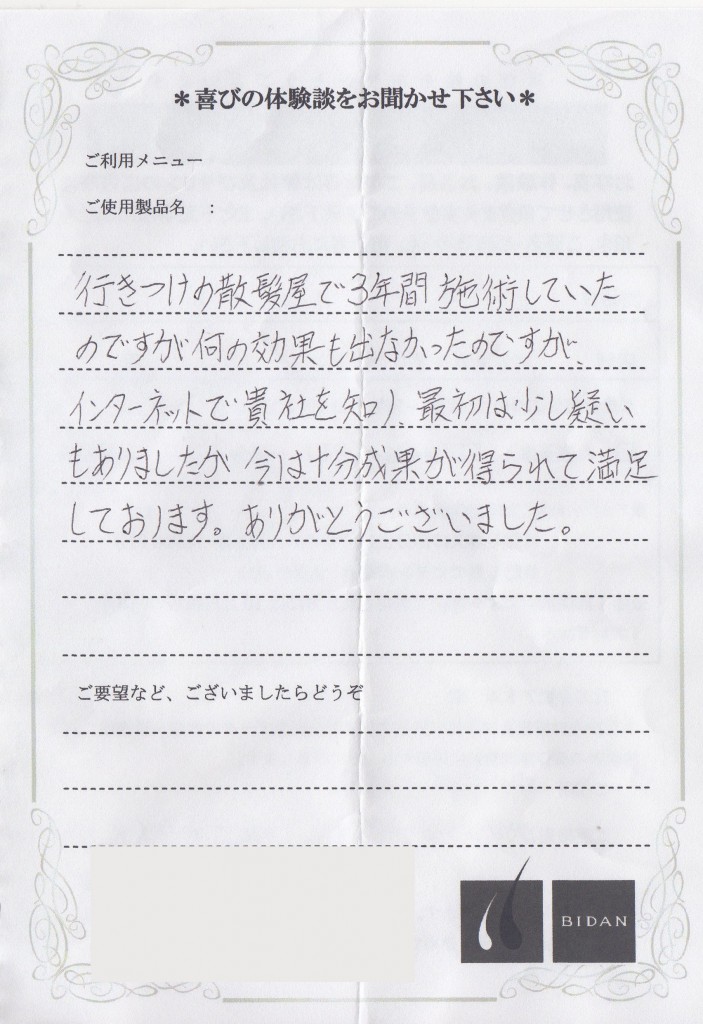 ＊喜びの体験談をお聞かせ下さい＊
ご利用メニュー
ご使用製品名　：
行きつけの散髪屋で3年間施術していた
のですが何の効果も出なかったのですが、
インターネットで貴社を知り、最初は少し疑い
もありましたが今は十分成果が得られて満足
しております。ありがとうございました。
ご要望など、ございましたらどうぞ
BIDAN